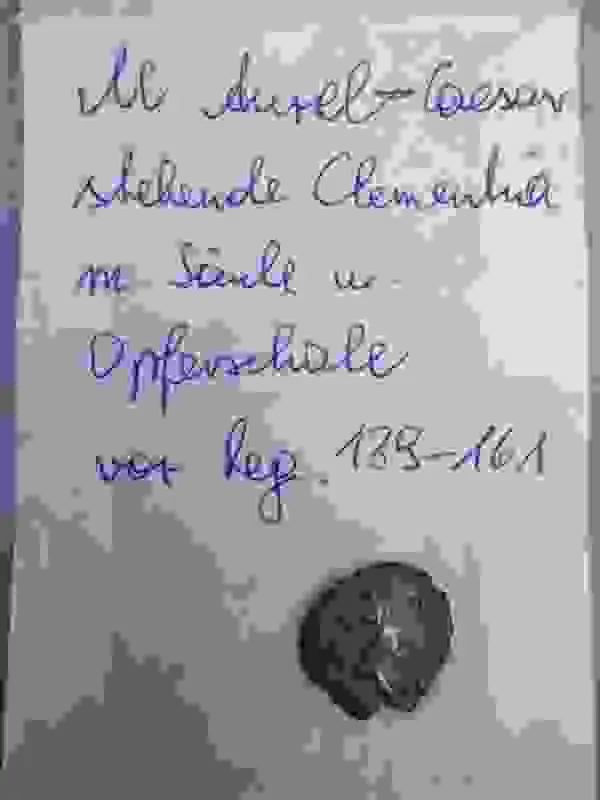 M Aurel-Caesar
stehende Clementia
m. Säule u.
Opferschale
vor Reg. 139-161